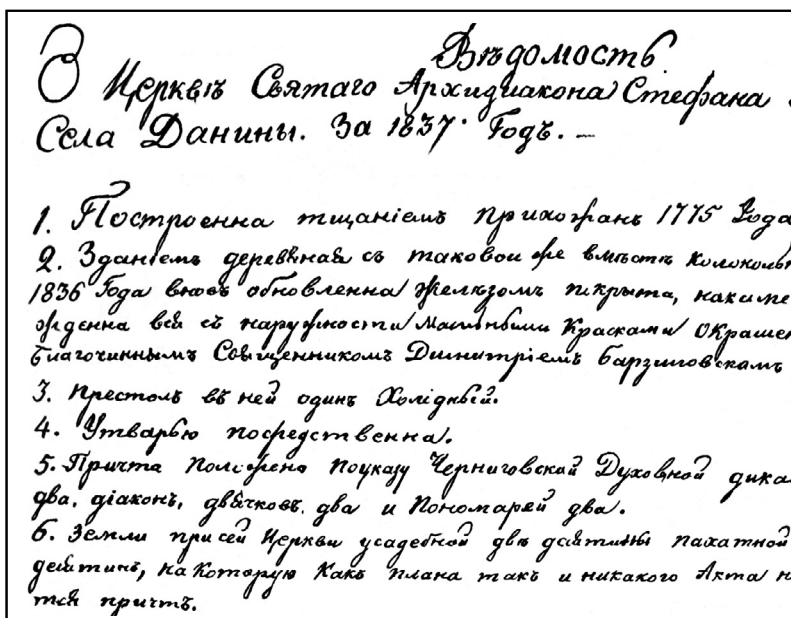 Вѣдомость
О Церквѣ Святаго Архидиакона Стефана
Села Данины. За 1837. Годъ. —
1. Построенна тщаніемъ прихожанъ 1775 Года
2. Зданіемъ деревяная съ таковой же вмѣстѣ колоколь
1836 Года вновь обновленна желѣзомъ покрыта,
жденна вся съ наружности масляными красками окрашен
благочиннымъ Священникомъ Димитріемъ Барзиловскамъ
3. Престолъ въ ней одинъ Холодный.
4. Утварью посредственна.
5. Причта положено поуказу Черниговской Духовной дика
два, діаконъ, дьячковъ два и Пономарей два.
6. Земли присей Церкви усадебной двѣ десятины пахатной
десятинъ, на которую какъ плана такъ и никакого Акта н
тся причтъ.